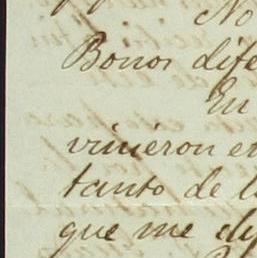 No
Bonos dife
En
vinieron en
tanto de l
que me di